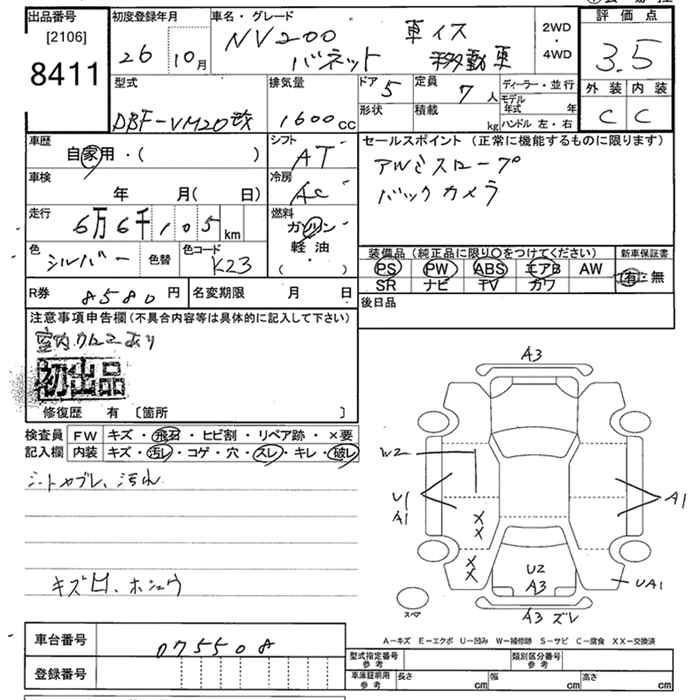 出品番号
[2106]
8411
初度登録年月
26 10月
車名・グレード
NV200
バネット
車イス
移動車
2WD
・
4WD
評価点
3.5
外装 内装
C C
型式
DBF-VM20改
排気量
1600cc
ドア 5
形状
定員 7人
積載 kg
ディーラー・並行
モデル年式 年
ハンドル 左・右
車歴
自家用・( )
シフト
AT
車検
年 月( 日)
冷房
AC
走行
6万6千105km
燃料
ガソリン
軽油
( )
色
シルバー
色替
色コード
K23
R券 8580円
名変期限 月 日
セールスポイント (正常に機能するものに限ります)
アルミスロープ
バックカメラ
装備品 (純正品に限り○をつけてください)
新車保証書
PS PW ABS エアB AW
SR ナビ TV カワ
有・無
後日品
注意事項申告欄(不具合内容等は具体的に記入して下さい)
室内 あり
初出品
修復歴 有 〔箇所 〕
検査員
記入欄
FW キズ・飛石・ヒビ割・リペア跡・×要
内装 キズ・汚レ・コゲ・穴・スレ・キレ・破レ
シートヤブレ、汚れ
キズ凹、ホシュウ
A3
W2
U1
A1
A1
X
X
X
X
U2
A3
UA1
スペア
A3 ズレ
A-キズ E-エクボ U-凹み W-補修跡 S-サビ C-腐食 XX-交換済
車台番号
075508
登録番号
型式指定番号
参考
類別区分番号
参考
車庫証明用
参考
長さ cm
幅 cm
高さ cm